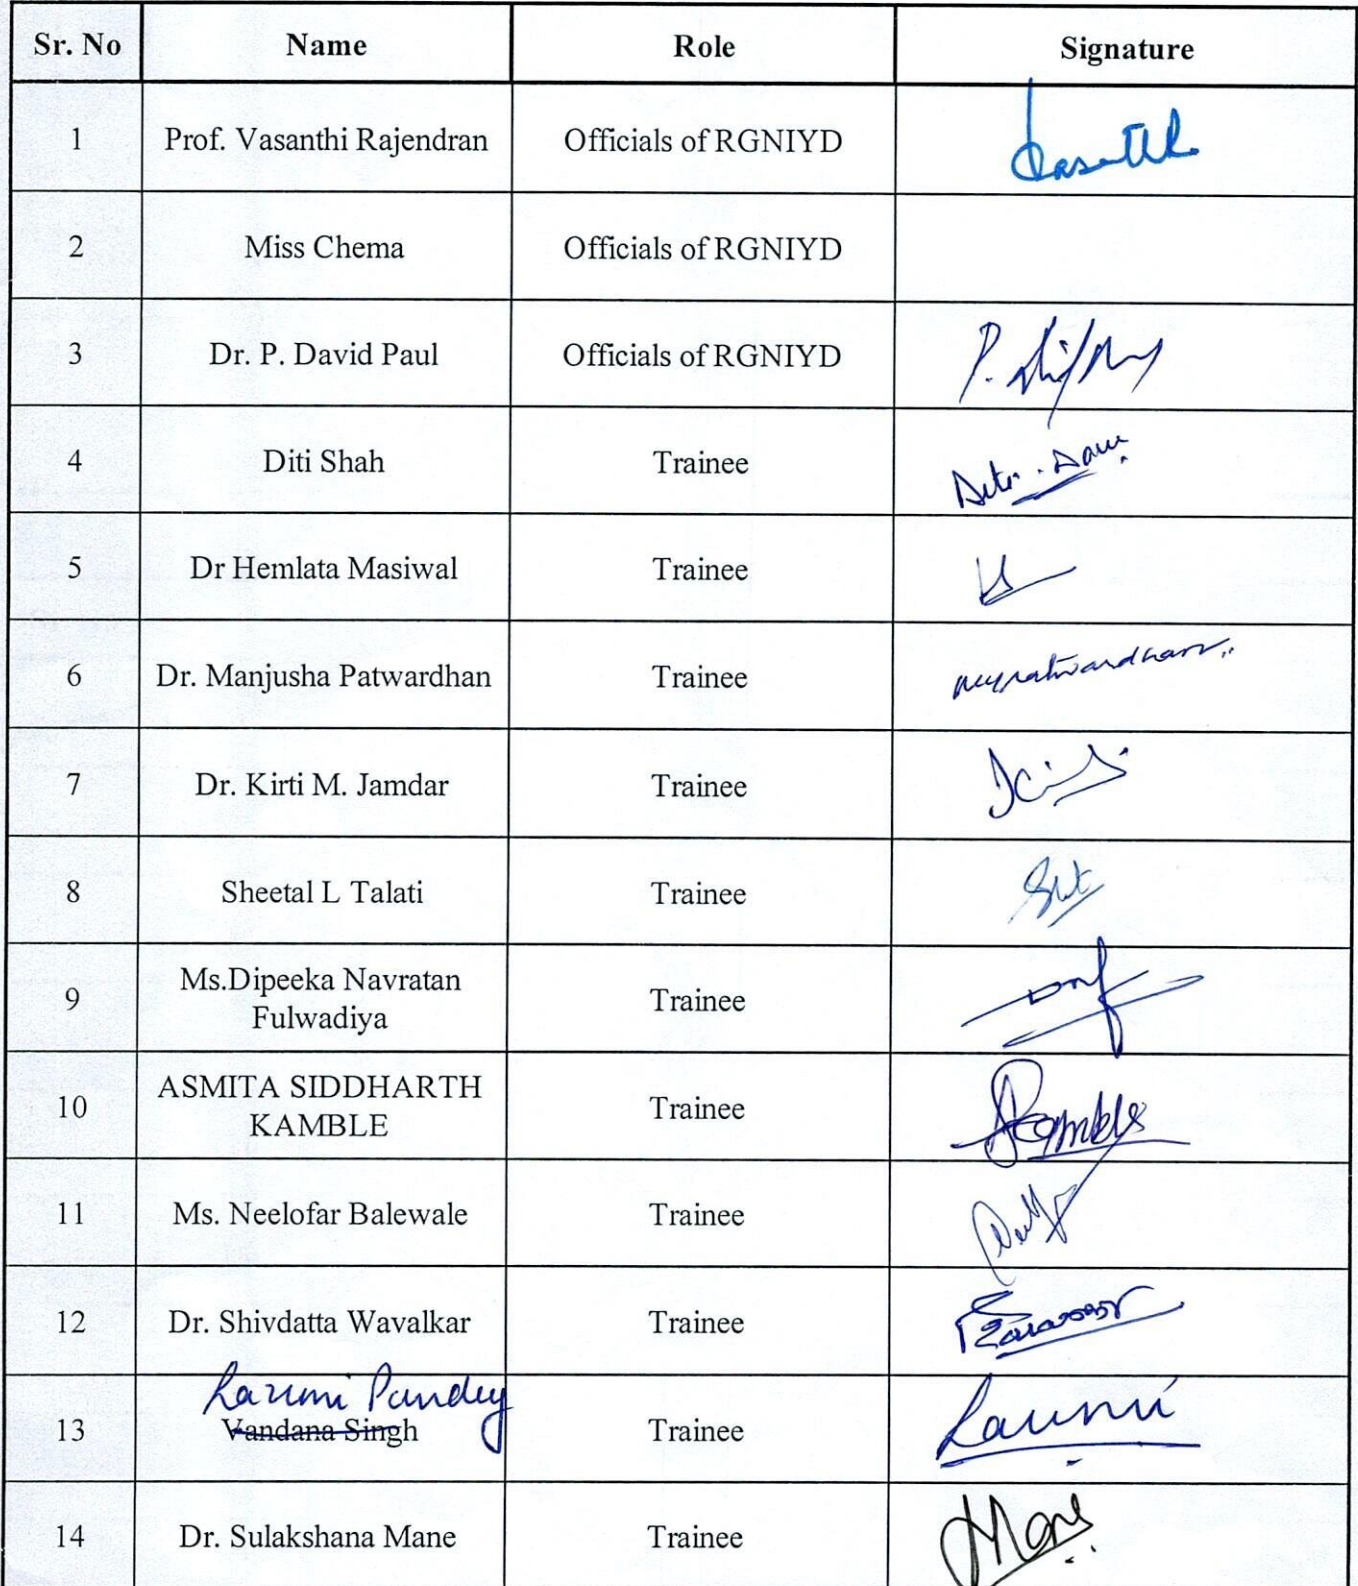 Sr. No Name Role Signature
1 Prof. Vasanthi Rajendran Officials of RGNIYD
2 Miss Chema Officials of RGNIYD
3 Dr. P. David Paul Officials of RGNIYD
4 Diti Shah Trainee
5 Dr Hemlata Masiwal Trainee
6 Dr. Manjusha Patwardhan Trainee
7 Dr. Kirti M. Jamdar Trainee
8 Sheetal L Talati Trainee
9 Ms.Dipeeka Navratan Fulwadiya Trainee
10 ASMITA SIDDHARTH KAMBLE Trainee Kamble
11 Ms. Neelofar Balewale Trainee
12 Dr. Shivdatta Wavalkar Trainee
Laxmi Pandey
13 Vandana Singh Trainee Laxmi
14 Dr. Sulakshana Mane Trainee Mane